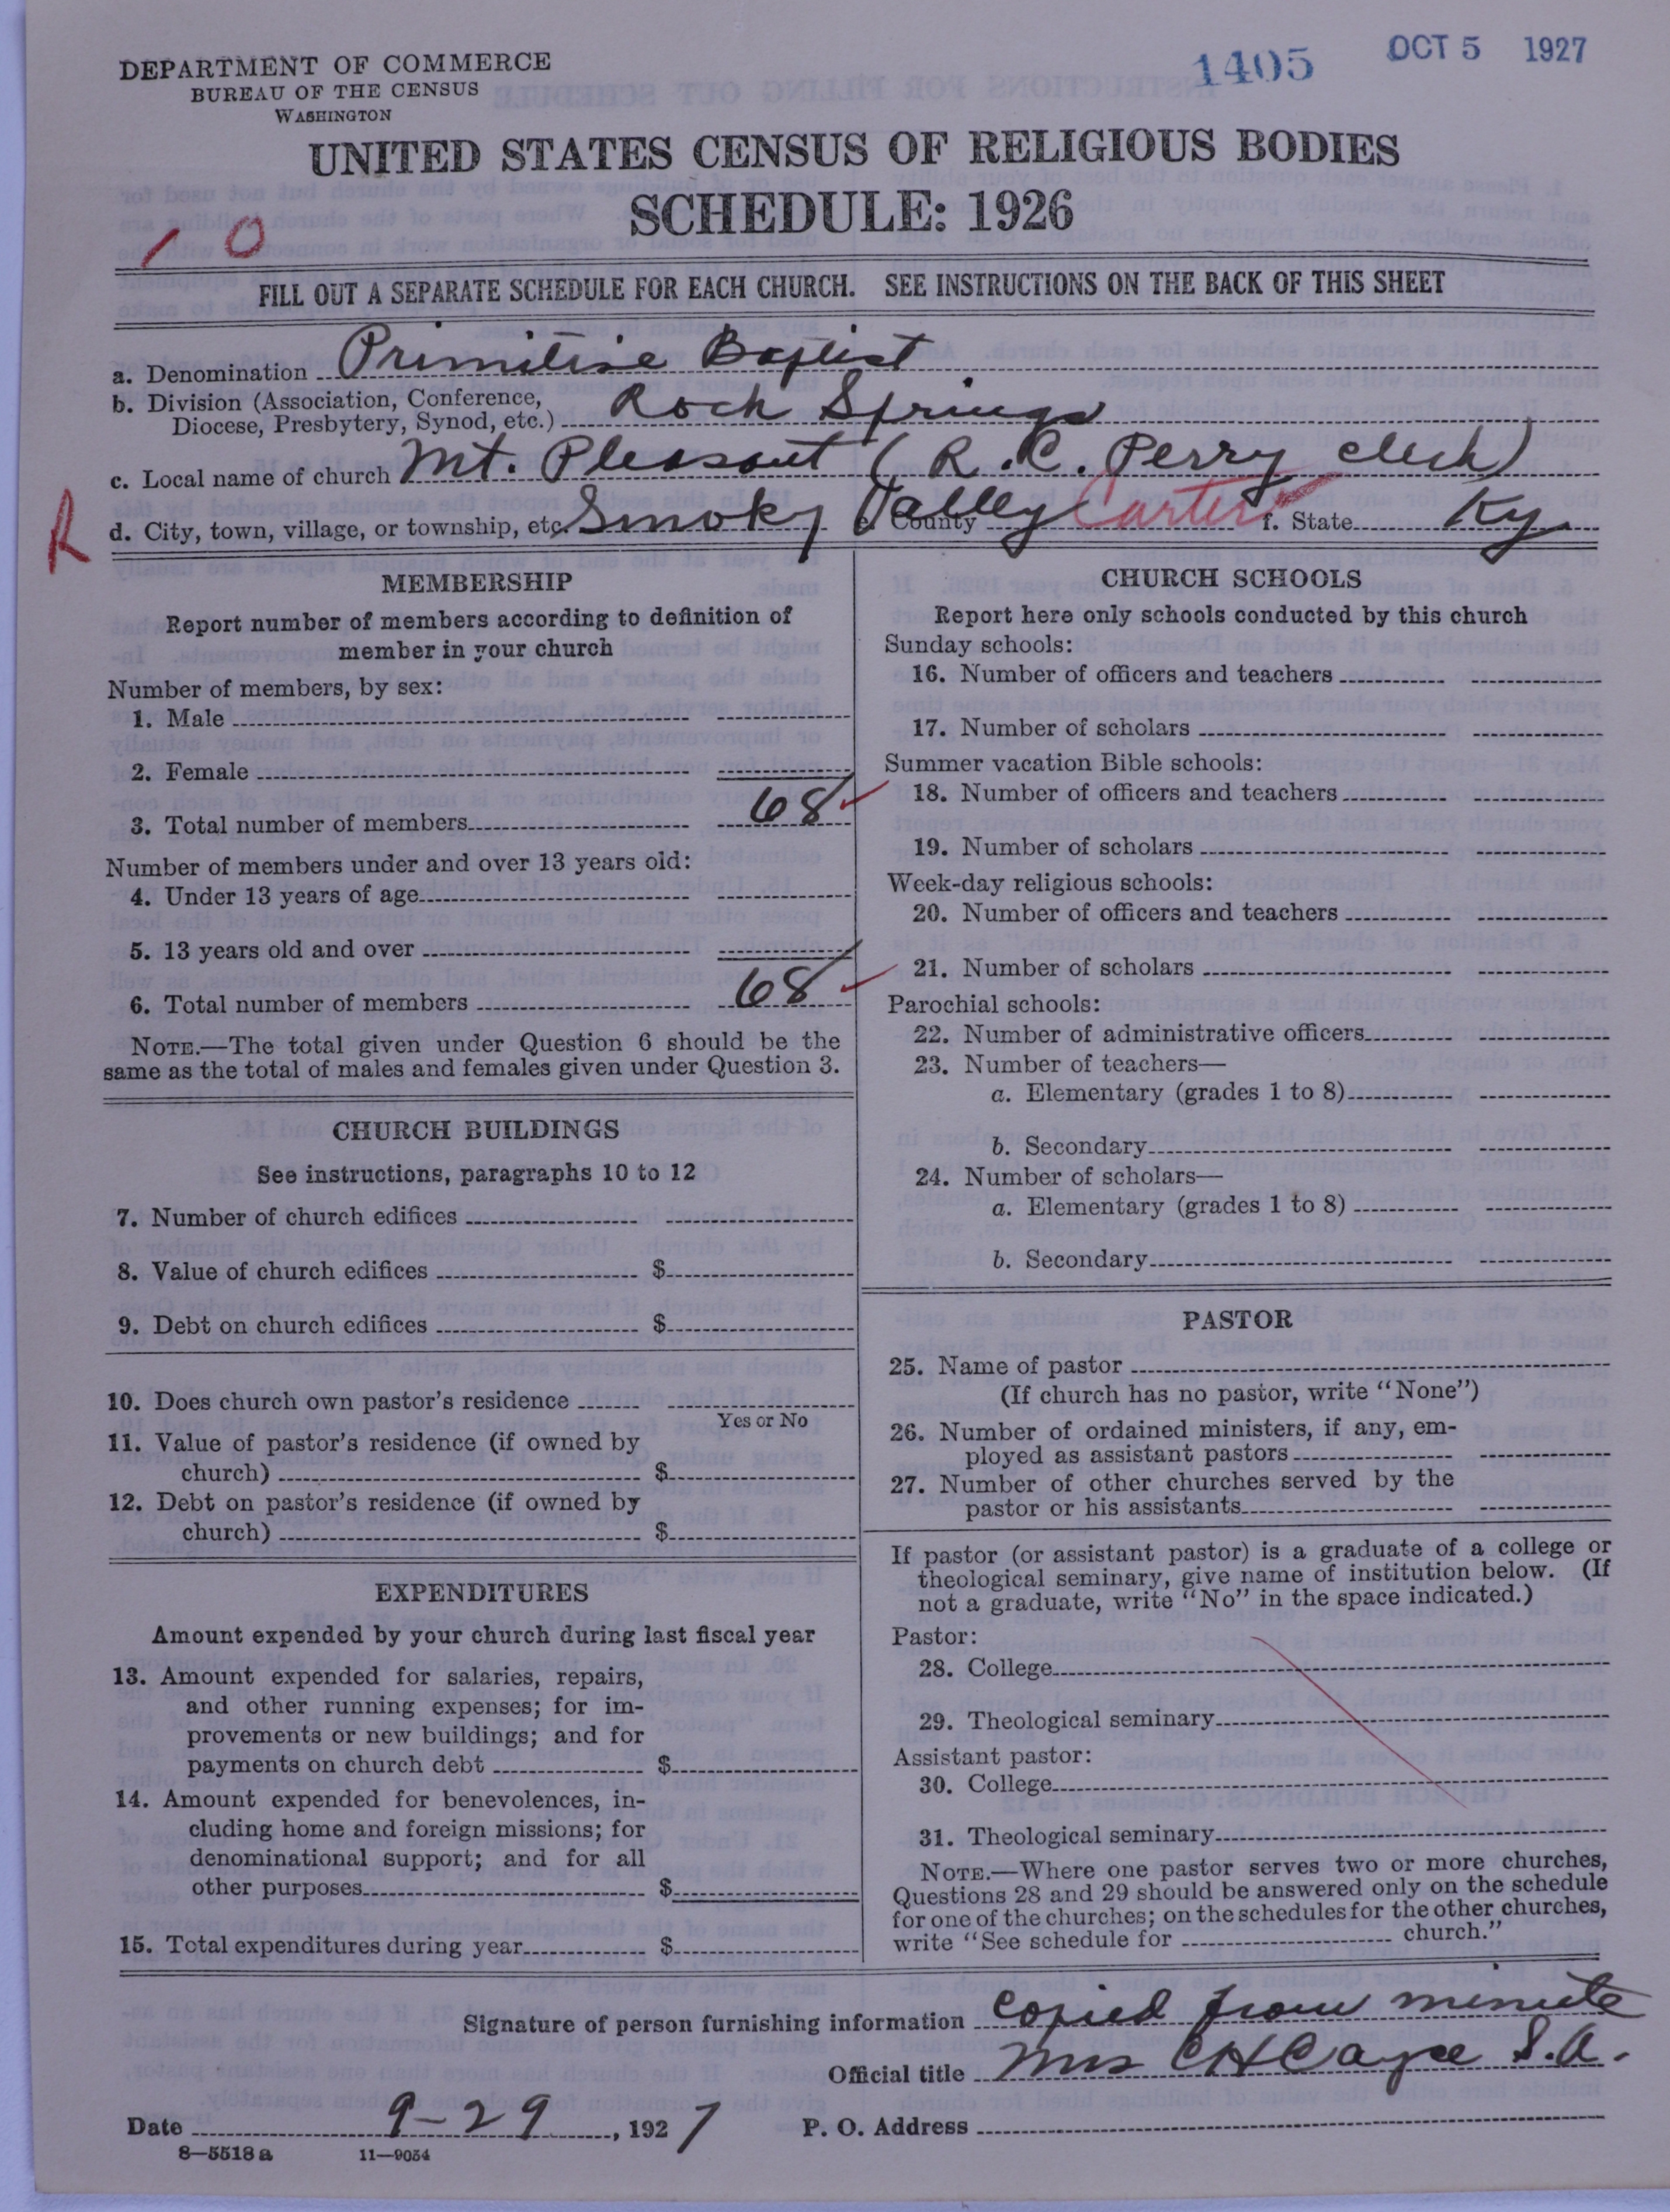 DEPARTMENT OF COMMERCE
BUREAU OF THE CENSUS
WASHINGTON
1405
OCT 5 1927
UNITED STATES CENSUS OF RELIGIOUS BODIES
SCHEDULE: 1926
1 0
FILL OUT A SEPARATE SCHEDULE FOR EACH CHURCH. SEE INSTRUCTIONS ON THE BACK OF THIS SHEET
a. Denomination Primitive Baptist
b. Division (Association, Conference,
Diocese, Presbytery, Synod, etc.) Rock Springs
c. Local name of church Mt. Pleasant (R. C. Perry clerk)
R
d. City, town, village, or township, etc. Smoky Valley e. County Carter f. State Ky.
MEMBERSHIP
Report number of members according to definition of
member in your church
Number of members, by sex:
1. Male
2. Female
3. Total number of members 68
Number of members under and over 13 years old:
4. Under 13 years of age
5. 13 years old and over
6. Total number of members 68
NOTE.—The total given under Question 6 should be the
same as the total of males and females given under Question 3.
CHURCH BUILDINGS
See instructions, paragraphs 10 to 12
7. Number of church edifices
8. Value of church edifices $
9. Debt on church edifices $
10. Does church own pastor's residence
Yes or No
11. Value of pastor's residence (if owned by
church) $
12. Debt on pastor's residence (if owned by
church) $
EXPENDITURES
Amount expended by your church during last fiscal year
13. Amount expended for salaries, repairs,
and other running expenses; for im-
provements or new buildings; and for
payments on church debt $
14. Amount expended for benevolences, in-
cluding home and foreign missions; for
denominational support; and for all
other purposes $
15. Total expenditures during year $
CHURCH SCHOOLS
Report here only schools conducted by this church
Sunday schools:
16. Number of officers and teachers
17. Number of scholars
Summer vacation Bible schools:
18. Number of officers and teachers
19. Number of scholars
Week-day religious schools:
20. Number of officers and teachers
21. Number of scholars
Parochial schools:
22. Number of administrative officers
23. Number of teachers—
a. Elementary (grades 1 to 8)
b. Secondary
24. Number of scholars—
a. Elementary (grades 1 to 8)
b. Secondary
PASTOR
25. Name of pastor
(If church has no pastor, write "None")
26. Number of ordained ministers, if any, em-
ployed as assistant pastors
27. Number of other churches served by the
pastor or his assistants
If pastor (or assistant pastor) is a graduate of a college or
theological seminary, give name of institution below. (If
not a graduate, write "No" in the space indicated.)
Pastor:
28. College
29. Theological seminary
Assistant pastor:
30. College
31. Theological seminary
NOTE.—Where one pastor serves two or more churches,
Questions 28 and 29 should be answered only on the schedule
for one of the churches; on the schedules for the other churches,
write "See schedule for church."
Signature of person furnishing information copied from minute
Official title Mrs C H Cayce S.A.
Date 9-29, 1927 P. O. Address
8—5518 a 11—9054